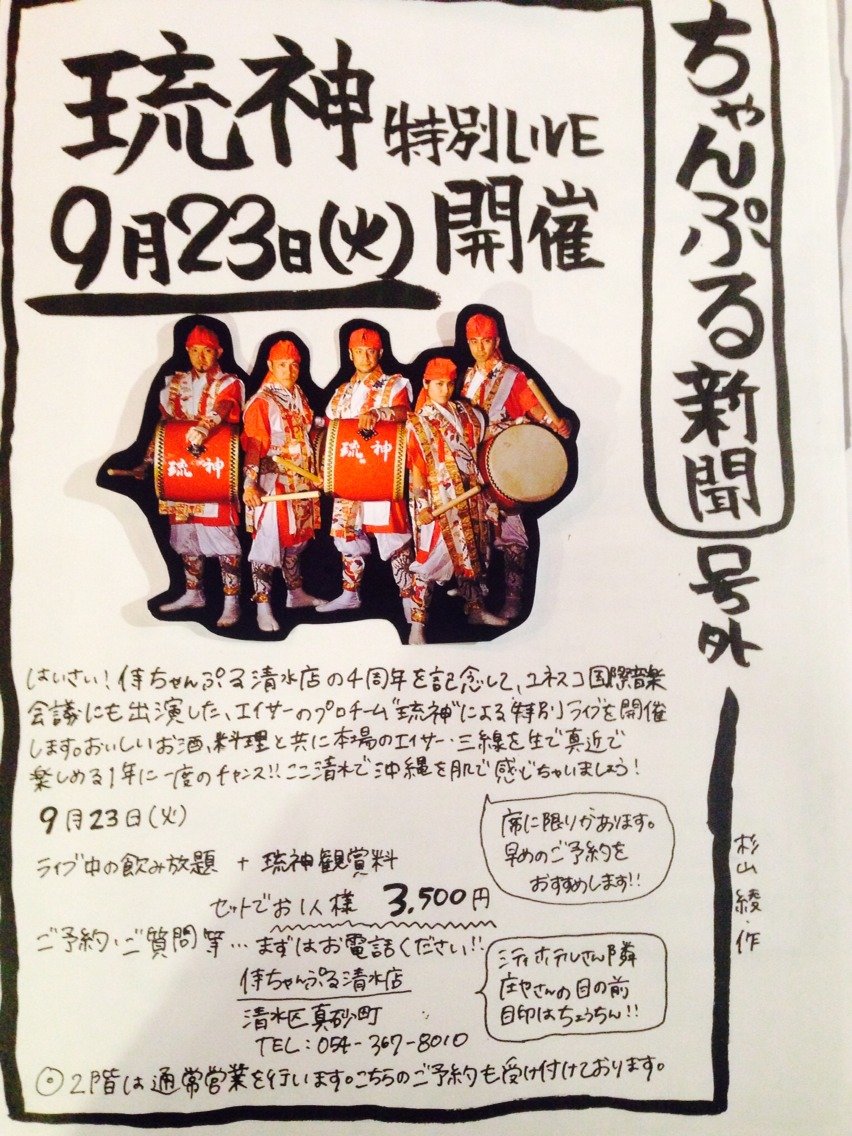 ちゃんぷる新聞 号外
琉神 特別LIVE
9月23日(火) 開催
琉神
琉神
はいさい!侍ちゃんぷる清水店の4周年を記念して、ユネスコ国際音楽
会議にも出演した、エイサーのプロチーム"琉神"による特別ライブを開催
します。おいしいお酒、料理と共に本場のエイサー・三線を生で真近で
楽しめる1年に一度のチャンス!!ここ清水で沖縄を肌で感じちゃいましょう!
9月23日(火)
席に限りがあります。
早めのご予約を
おすすめします!!
ライブ中の飲み放題 + 琉神観賞料
セットでお1人様 3,500円
ご予約・ご質問等…まずはお電話ください!!
侍ちゃんぷる清水店
清水区真砂町
TEL:054-367-8010
シティホテルさん隣
庄やさんの目の前
目印はちょうちん!!
⊙2階は通常営業を行います。こちらのご予約も受け付けております。
杉山 綾・作